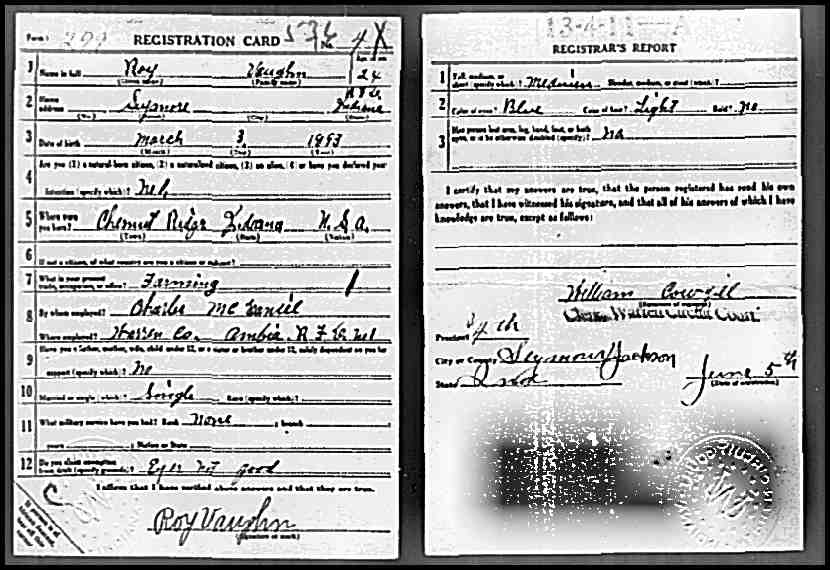 Form 1 297 REGISTRATION CARD 536 No. 4 X
1 Name in full Roy Vaughn 24
(Given name) (Family name)
2 Home address Seymore R.F.D. Indiana
(No.) (City) (State)
3 Date of birth March 3, 1893
(Month) (Day) (Year)
Are you (1) a natural-born citizen, (2) a naturalized citizen, (3) an alien, (4) or have you declared your
4 intention (specify which)?
5 Where were you born? Chesnut Ridge Indiana U.S.A.
(Town) (State) (Nation)
6 If not a citizen, of what country are you a citizen or subject?
7 What is your present trade, occupation, or office? Farming
8 By whom employed? Charles McDaniel
Where employed? Warren Co. Ambia R.F.D.
9 Have you a father, mother, wife, child under 12, or a sister or brother under 12, solely dependent on you for
support (specify which)? No
10 Married or single (which)? Single Race (specify which)?
11 What military service have you had? Rank None ; branch
years ; Nation or State
12 Do you claim exemption from draft (specify grounds)? Eyes not good
I affirm that I have verified above answers and that they are true.
Roy Vaughn
(Signature or mark)
13-4-11 A
REGISTRAR'S REPORT
1 Tall, medium, or short (specify which)? Medium Slender, medium, or stout (which)?
2 Color of eyes? Blue Color of hair? Light Bald? No
3 Has person lost arm, leg, hand, foot, or both eyes, or is he otherwise disabled (specify)? No
I certify that my answers are true, that the person registered has read his own
answers, that I have witnessed his signature, and that all of his answers of which I have
knowledge are true, except as follows:
William Cowgill
(Signature of registrar)
Clerk Warren Circuit Court
Precinct 3/4 th
City or County Seymour Jackson
State Ind June 5th
(Date of registration)